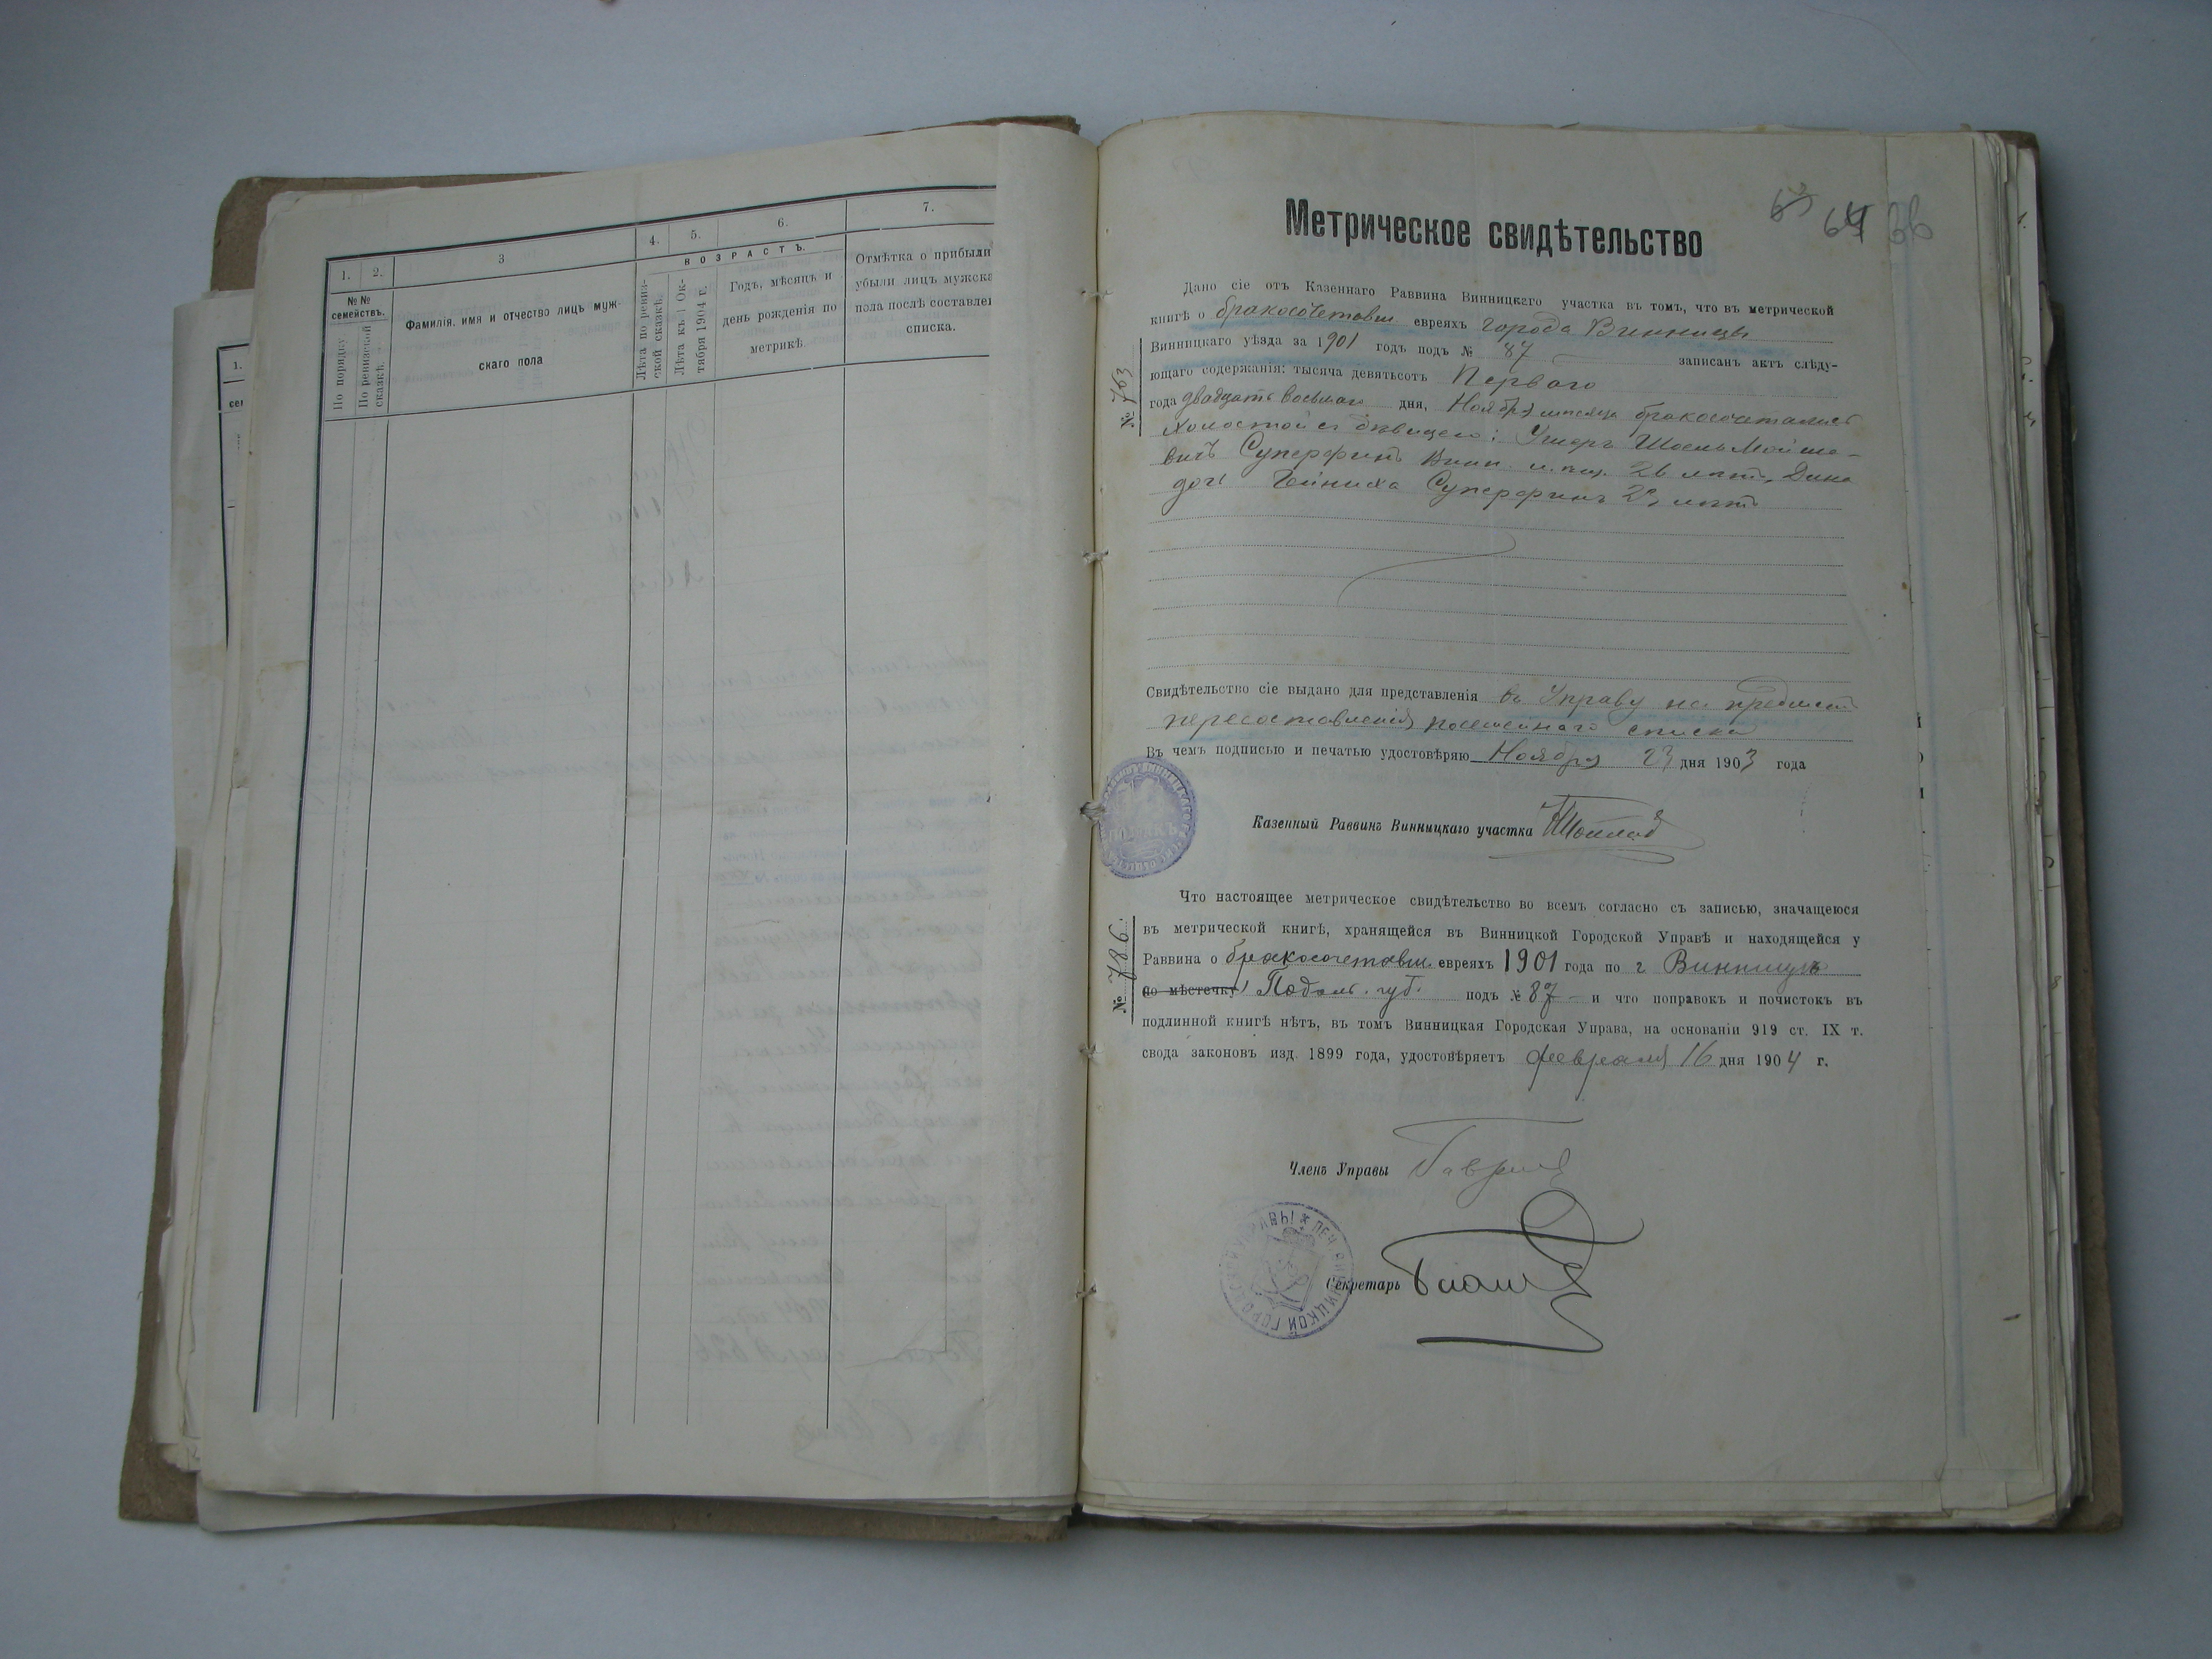 1.
2.
3
4.
5.
6.
7.
№ №
семействъ.
По порядку
По ревизской
сказкѣ.
Фамилія, имя и отчество лицъ муж-
скаго пола
ВОЗРАСТЪ.
Лѣта по ревиз-
ской сказкѣ.
Лѣта къ 1 Ок-
тября 1904 г.
Годъ, мѣсяцъ и
день рожденія по
метрикѣ
Отмѣтка о прибыли
убыли лицъ мужска
пола послѣ составле
списка.
1.
сег
63 64 66
Метрическое свидѣтельство
Дано сіе отъ Казеннаго Раввина Винницкаго участка въ томъ, что въ метрической
книгѣ о бракосочетавш. евреяхъ города Винницы
Винницкаго уѣзда за 1901 годъ подъ № 87 записанъ актъ слѣду-
ющаго содержанія: тысяча девятьсотъ Перваго
года двадцать восьмаго дня, Ноября мѣсяца бракосочетались
холостой съ дѣвицею: Ушеръ Шоель Мойше-
вичъ Суперфинъ Винн. мѣщ. 26 лѣтъ, Дина
дочь Суперфинъ 23 лѣтъ
№ 763
Свидѣтельство сіе выдано для представленія въ Управу на предметъ
пересоставленія посемейнаго списка
Въ чемъ подписью и печатью удостовѣряю Ноября 23 дня 1903 года
Казенный Раввинъ Винницкаго участка
Что настоящее метрическое свидѣтельство во всемъ согласно съ записью, значащеюся
въ метрической книгѣ, хранящейся въ Винницкой Городской Управѣ и находящейся у
Раввина о бракосочетавш. евреяхъ 1901 года по г. Винницѣ
по мѣстечку Подол. губ. подъ № 87 и что поправокъ и почистокъ въ
подлинной книгѣ нѣтъ, въ томъ Винницкая Городская Управа, на основаніи 919 ст. IX т.
свода законовъ изд. 1899 года, удостовѣряетъ февраля 16 дня 1904 г.
№ 786.
Членъ Управы
Секретарь
ПЕЧ. ВИННИЦКОЙ ГОРОДСКОЙ УПРАВЫ